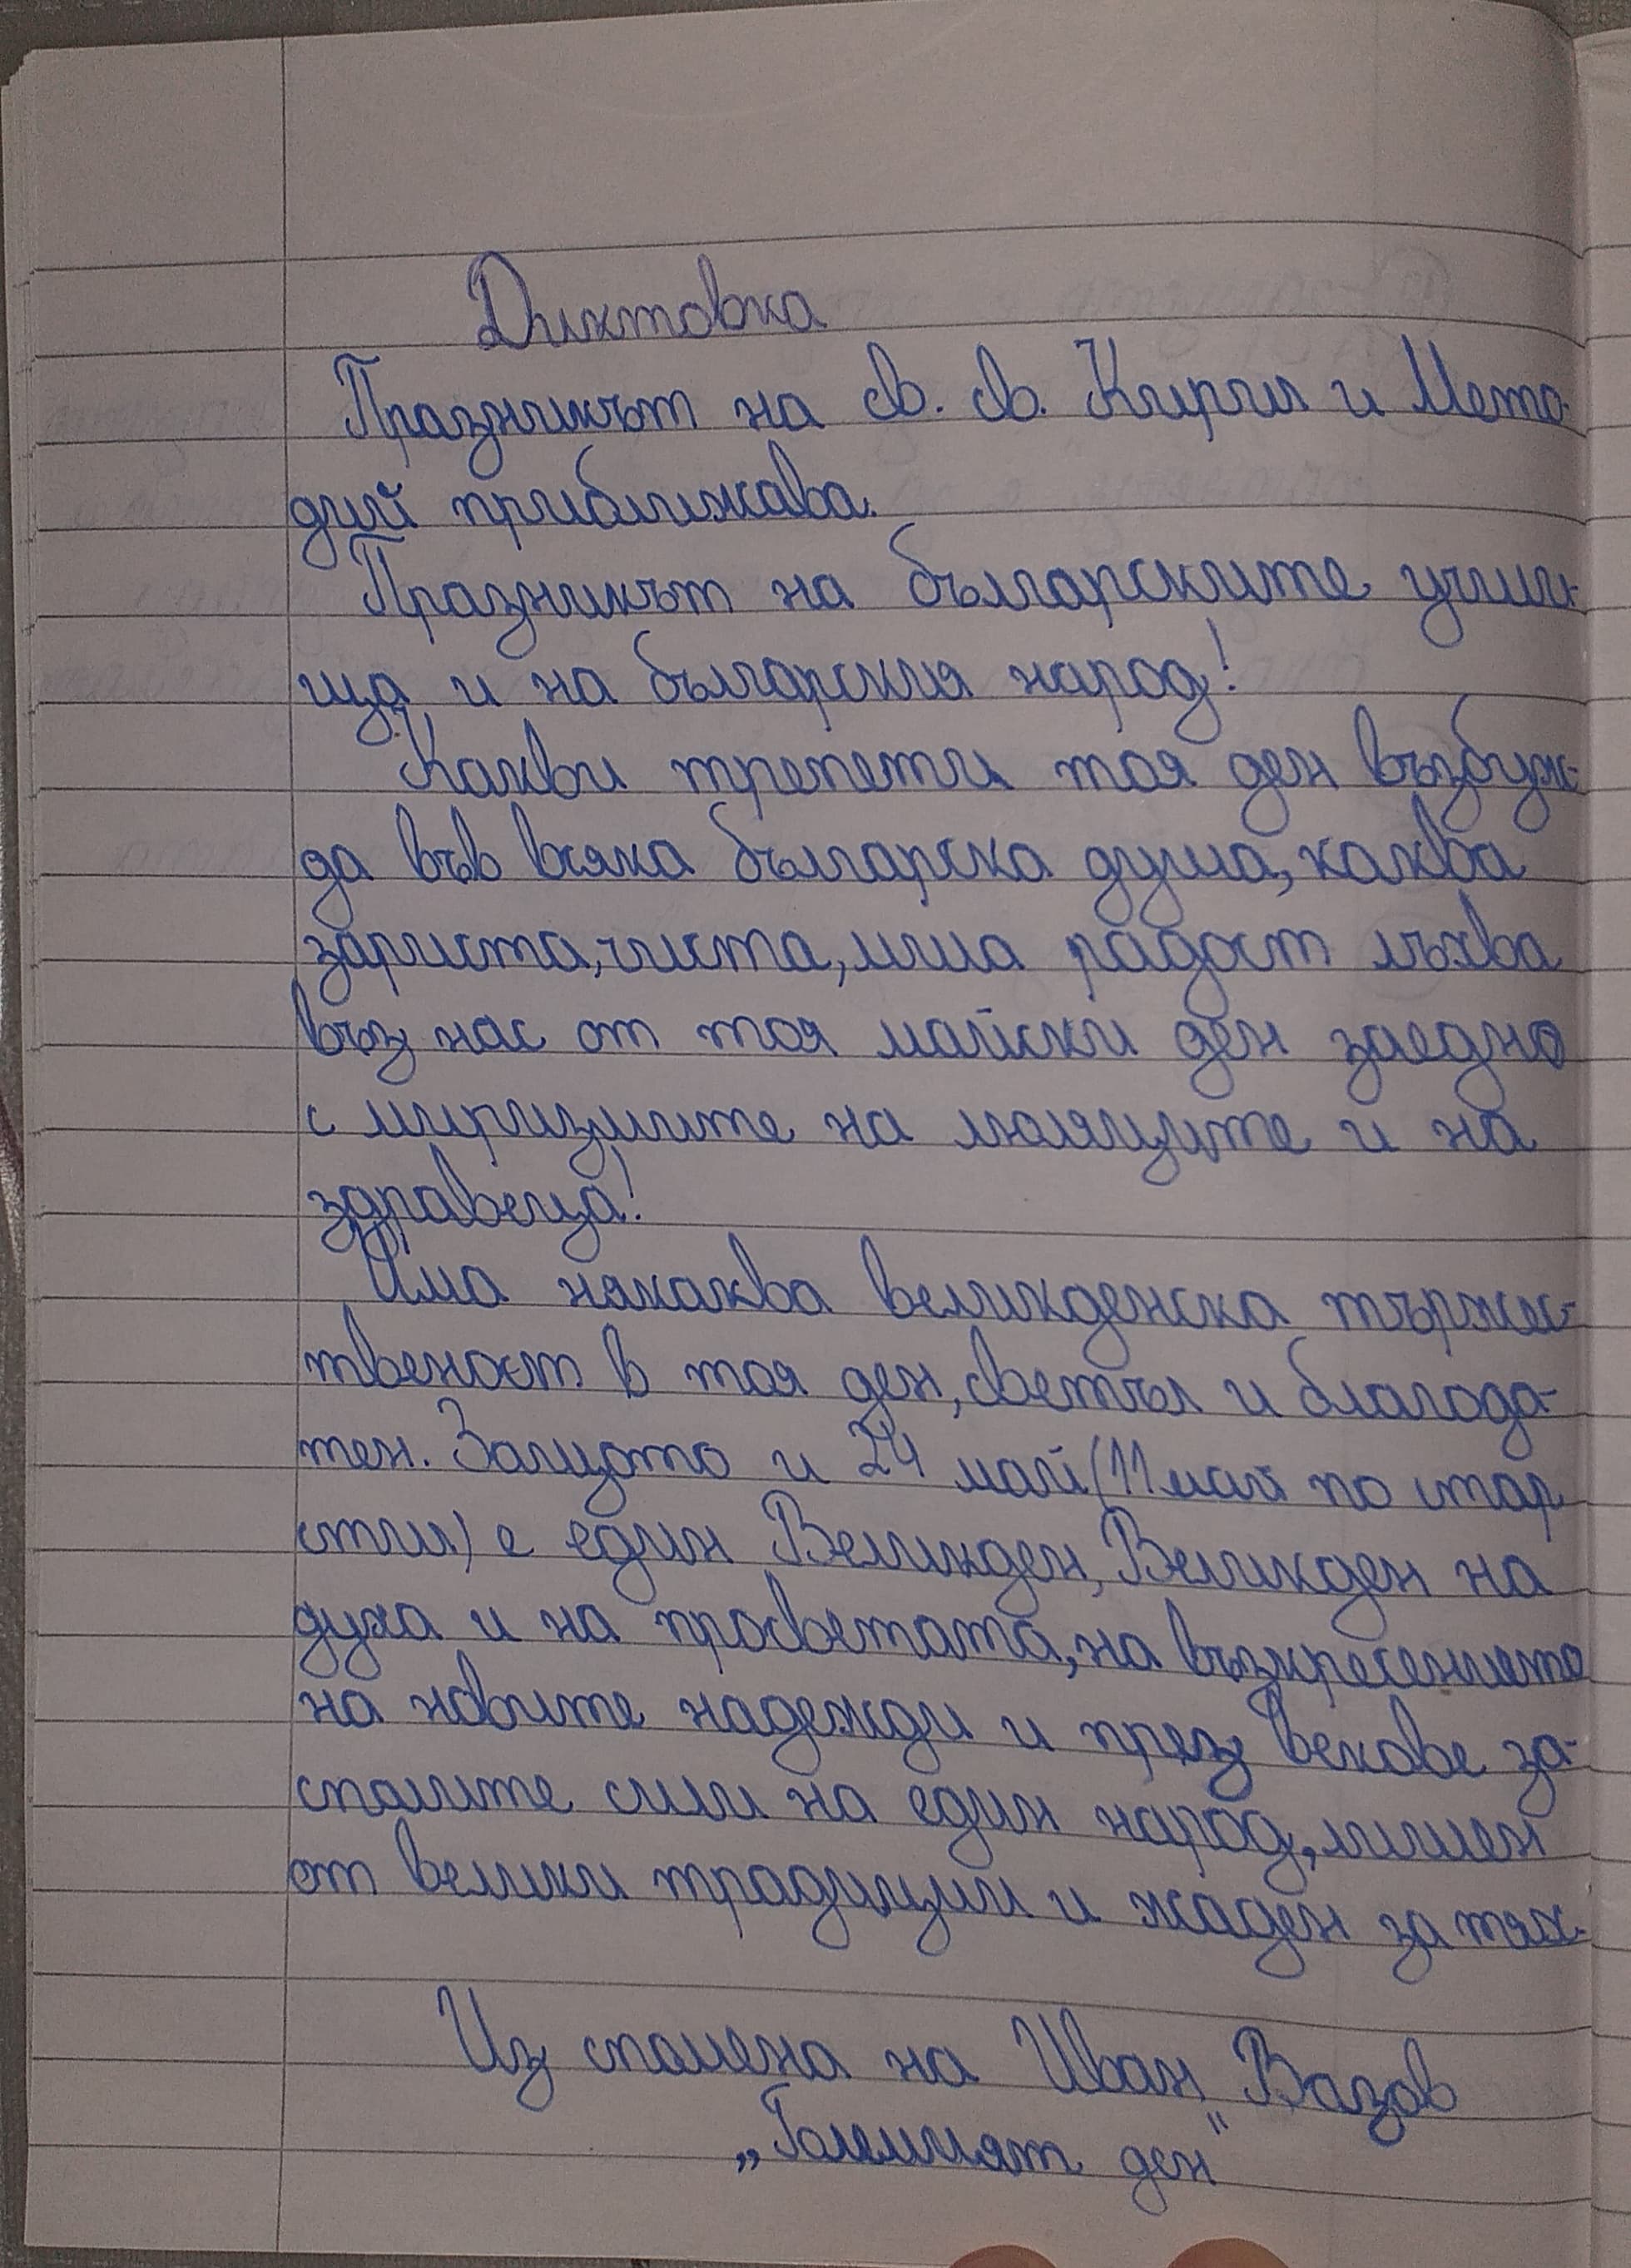 Диктовка
Празникът на св. св. Кирил и Мето-
дий приближава.
Празникът на българските учили-
ща и на българския народ!
Какви трепети тоя ден възбуж-
да във всяка българска душа, каква
зариста, чиста, мила радост лъхва
въз нас от тоя майски ден заедно
с миризмите на люляците и на
здравеца!
Има някаква великденска тържес-
твеност в тоя ден, светъл и благода-
тен. Защото и 24 май (11 май по стар
стил) е един Великден, Великден на
духа и на просветата, на възкресението
на новите надежди и през векове за-
спалите сили на един народ, лишен
от велики традиции и жаден за тях.
Из спомена на Иван Вазов
„Големият ден"